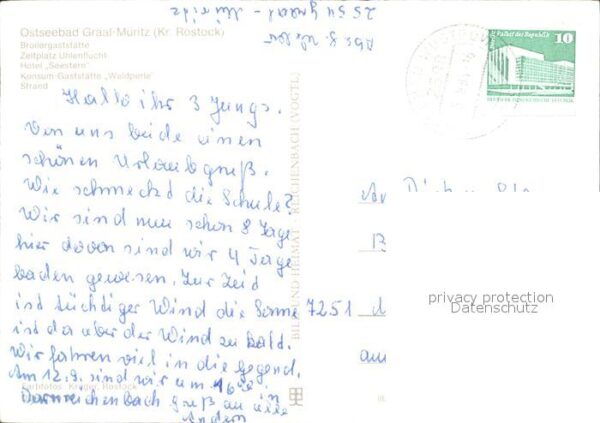 Ostseebad Graal-Müritz (Kr. Rostock)
Broilergaststätte
Zeltplatz Uhlenflucht
Hotel „Seestern"
Konsum-Gaststätte „Waldperle"
Strand
Hallo ihr 3 Jungs.
Von uns beide einen
schönen Urlaubgruß.
Wie schmeckd die Schule?
Wir sind nun schon 8 Tage
hier davon sind wir 4 Tage
baden gewesen. Zur Zeid
ist tüchdiger Wind die Sonne
ist da aber der Wind zu kald.
Wir fahren viel in die gegend.
Am 12.9. sind wir um 16 in
Dornreichenbach gruß an alle
Andern
Farbfotos: Kroger, Rostock
BILD UND HEIMAT REICHENBACH (VOGTL)
Abs
2554 Graal-Müritz
Palast der Republik
10
An
7251
privacy protection
Datenschutz